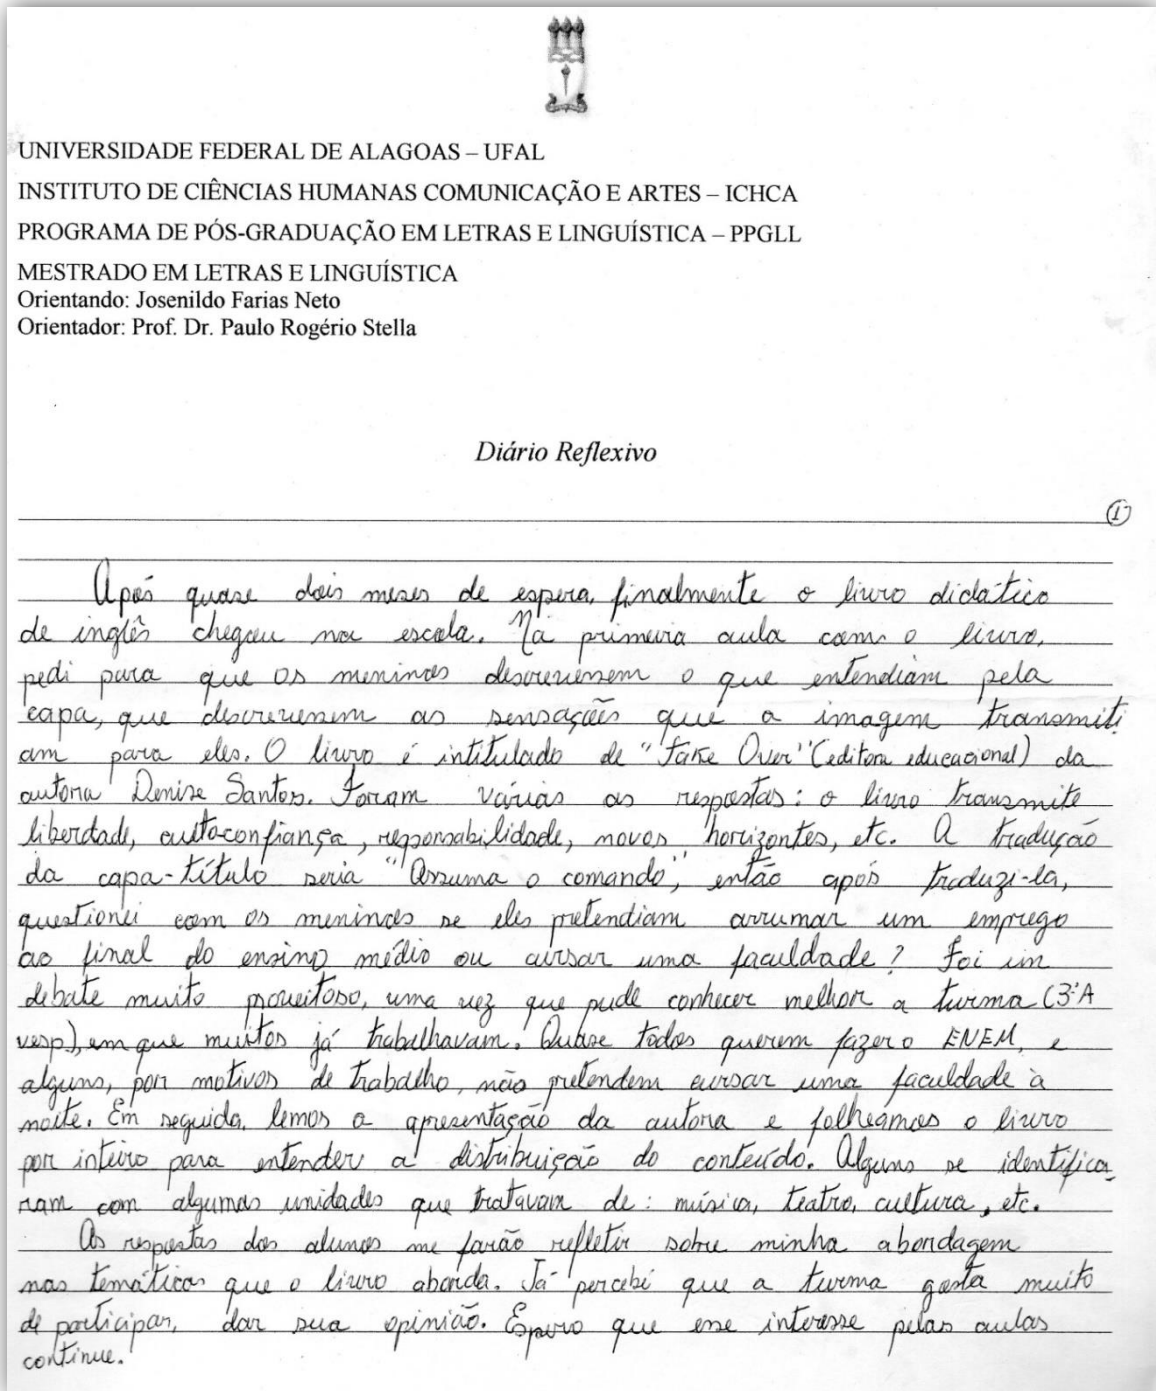 UNIVERSIDADE FEDERAL DE ALAGOAS – UFAL
INSTITUTO DE CIÊNCIAS HUMANAS COMUNICAÇÃO E ARTES – ICHCA
PROGRAMA DE PÓS-GRADUAÇÃO EM LETRAS E LINGUÍSTICA – PPGLL
MESTRADO EM LETRAS E LINGUÍSTICA
Orientando: Josenildo Farias Neto
Orientador: Prof. Dr. Paulo Rogério Stella
Diário Reflexivo
1
Após quase dois meses de espera, finalmente o livro didático
de inglês chegou na escola. Na primeira aula com o livro,
pedi para que os meninos descrevessem o que entendiam pela
capa, que descrevessem as sensações que a imagem transmiti
am para eles. O livro é intitulado de "Take Over" (editora educacional) da
autora Denise Santos. Foram várias as respostas: o livro transmite
liberdade, autoconfiança, responsabilidade, novos horizontes, etc. A tradução
da capa-título seria "Assuma o comando", então após traduzi-la,
questionei com os meninos se eles pretendiam arrumar um emprego
ao final do ensino médio ou cursar uma faculdade? Foi um
debate muito proveitoso, uma vez que pude conhecer melhor a turma (3ºA
vesp), em que muitos já trabalhavam. Quase todos querem fazer o ENEM, e
alguns, por motivos de trabalho, não pretendem cursar uma faculdade à
noite. Em seguida, lemos a apresentação da autora e folheamos o livro
por inteiro para entender a distribuição do conteúdo. Alguns se identifica
ram com algumas unidades que tratavam de: música, teatro, cultura, etc.
As respostas dos alunos me farão refletir sobre minha abordagem
nas temáticas que o livro aborda. Já percebi que a turma gosta muito
de participar, dar sua opinião. Espero que esse interesse pelas aulas
continue.